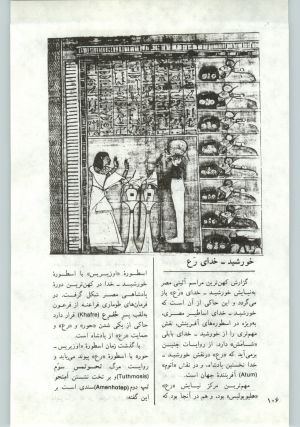 خورشید ـ خدای رَع
گزارش کهن‌ترین مراسم آئینی مصر
به‌نیایش خورشید ـ خدای «رع» باز
می‌گردد و این حاکی از آن است که
خورشید ـ خدای اساطیر مصری،
به‌ویژه در اسطوره‌های آفرینش، نقش
مهم‌تری را از خورشید ـ خدای بابلی
«شَمَش» دارد. از روایات چنین
برمی‌آید که «رع» درنقش خورشید ـ
خدا نخستین پادشاه، و در نقش «اتوم»
(Atum) آفرینندۀ جهان است.
مهم‌ترین مرکز نیایش «رع»
«هلیوپولیس» بود، و هم در آنجا بود که
اسطورۀ «اوزیریس» با اسطورۀ
خورشید ـ خدا در کهن‌ترین دورۀ
پادشاهی مصر شکل گرفت. در
فرمان‌های طوماری فراعنه از فرعون
به‌لقب پسر خَفرع (Khafre) قرار دارد
حاکی از یکی شدن «حور» و «رع» و
حمایت «رع» از پادشاه است.
با گذشت زمان اسطورۀ «اوزیریس ـ
حور» با اسطورۀ «رع» پیوند می‌یابد و
روایت مرگ تحوتمس سوّم
(Tuthmosis) و بر تخت نشستن آمنحو
تپ دوم (Amenhotep) سندی است بر
این گفته:
۱۰۶